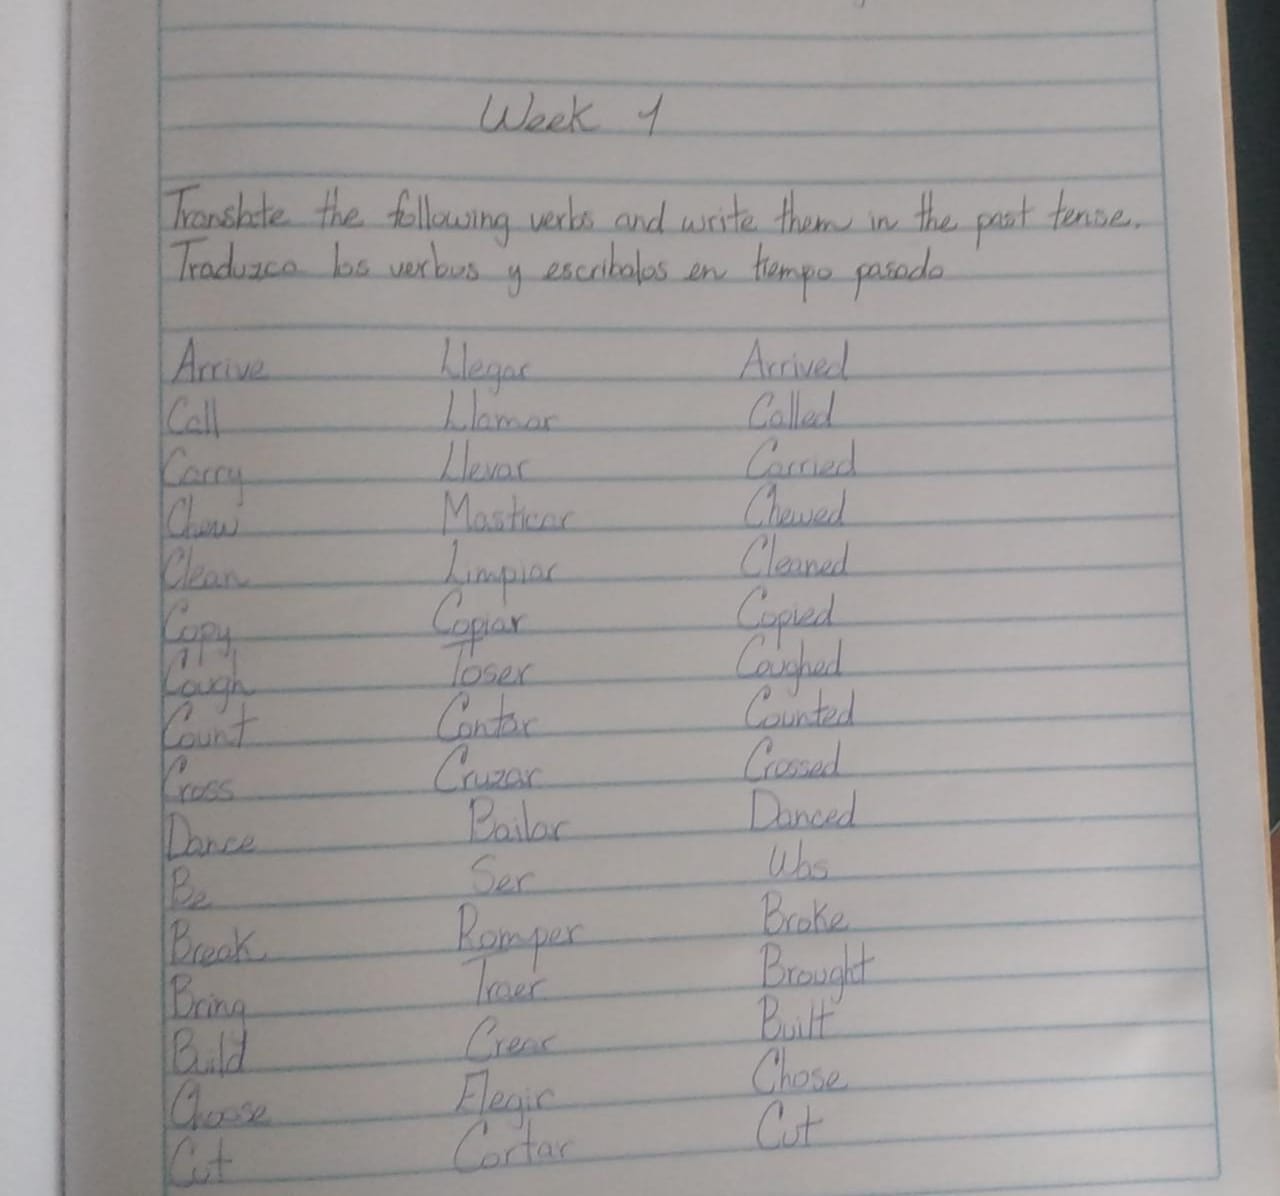 Week 1
Translate the following verbs and write them in the past tense.
Traduzca los verbos y escribalos en tiempo pasado
Arrive Llegar Arrived
Call Llamar Called
Carry Llevar Carried
Chew Masticar Chewed
Clean Limpiar Cleaned
Copy Copiar Copied
Cough Toser Coughed
Count Contar Counted
Cross Cruzar Crossed
Dance Bailar Danced
Be Ser Was
Break Romper Broke
Bring Traer Brought
Build Crear Built
Choose Elegir Chose
Cut Cortar Cut